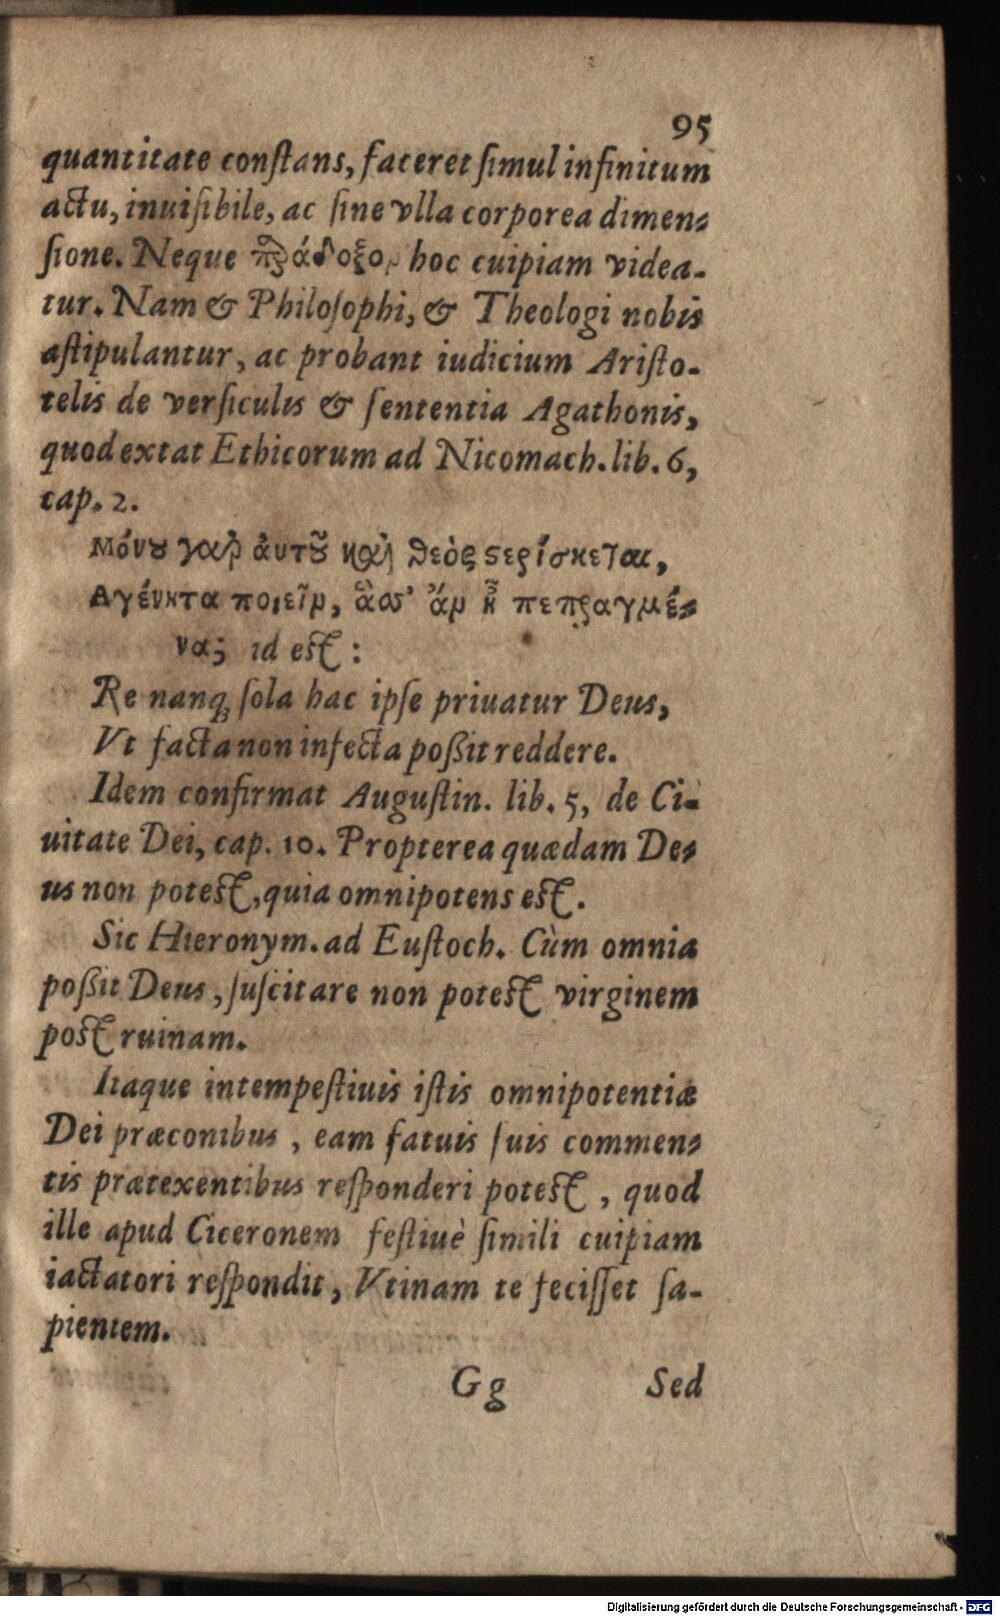 95
quantitate constans, faceret simul infinitum
actu, inuisibile, ac sine vlla corporea dimen-
sione. Neque παράδοξον hoc cuipiam videa-
tur. Nam & Philosophi, & Theologi nobis
astipulantur, ac probant iudicium Aristo-
telis de versiculis & sententia Agathonis,
quod extat Ethicorum ad Nicomach. lib. 6,
cap. 2.
Μόνου γαρ ἀυτοῦ καὶ θεὸς στερίσκεται,
Αγένητα ποιεῖν, ἅσσ' ἂν ᾖ πεπραγμέ-
να; id est:
Re nanq; sola hac ipse priuatur Deus,
Vt facta non infecta poßit reddere.
Idem confirmat Augustin. lib. 5, de Ci-
uitate Dei, cap. 10. Propterea quædam De-
us non potest, quia omnipotens est.
Sic Hieronym. ad Eustoch. Cùm omnia
poßit Deus, suscitare non potest virginem
post ruinam.
Itaque intempestiuis istis omnipotentiæ
Dei præconibus, eam fatuis suis commen-
tis prætexentibus responderi potest, quod
ille apud Ciceronem festiuè simili cuipiam
iactatori respondit, Vtinam te fecisset sa-
pientem.
Gg Sed
Digitalisierung gefördert durch die Deutsche Forschungsgemeinschaft - DFG